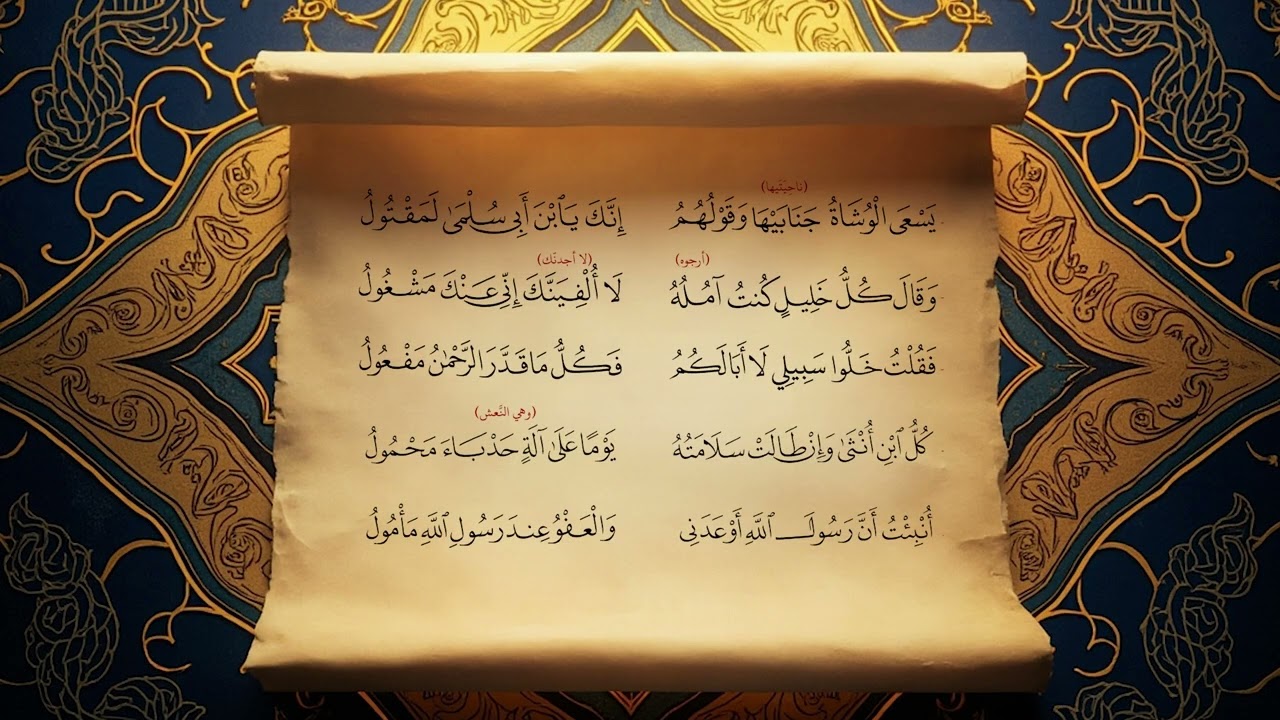 (ناحيَتَيها)
يَسْعَى الْوُشَاةُ جَنَابَيْهَا وَقَوْلُهُمُ إِنَّكَ يَا ٱبْنَ أَبِي سُلْمَىٰ لَمَقْتُولُ
(أرجوه) (لا أجدنَّك)
وَقَالَ كُلُّ خَلِيلٍ كُنتُ آمُلُهُ لَا أُلْفِيَنَّكَ إِنِّي عَنْكَ مَشْغُولُ
فَقُلْتُ خَلُّوا سَبِيلِي لَا أَبَا لَكُمُ فَكُلُّ مَا قَدَّرَ الرَّحْمَٰنُ مَفْعُولُ
(وهي النَّعش)
كُلُّ ٱبْنِ أُنْثَىٰ وَإِن طَالَتْ سَلَامَتُهُ يَوْمًا عَلَىٰ آلَةٍ حَدْبَاءَ مَحْمُولُ
أُنْبِئْتُ أَنَّ رَسُولَ ٱللَّهِ أَوْعَدَنِي وَالْعَفْوُ عِندَ رَسُولِ ٱللَّهِ مَأْمُولُ